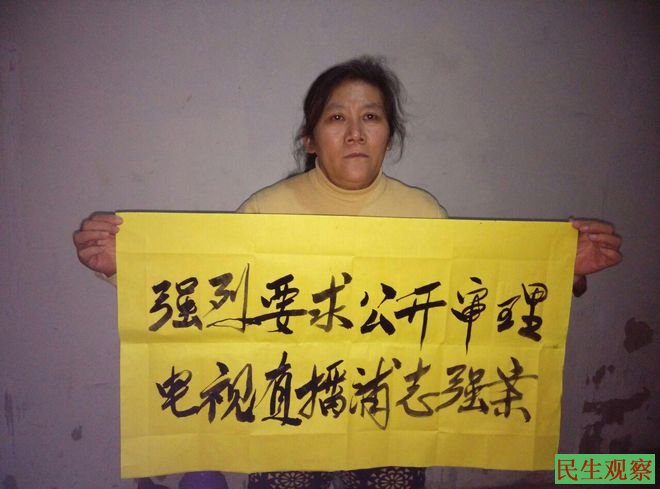 强烈要求公开审理
电视直播浦志强案
民生观察